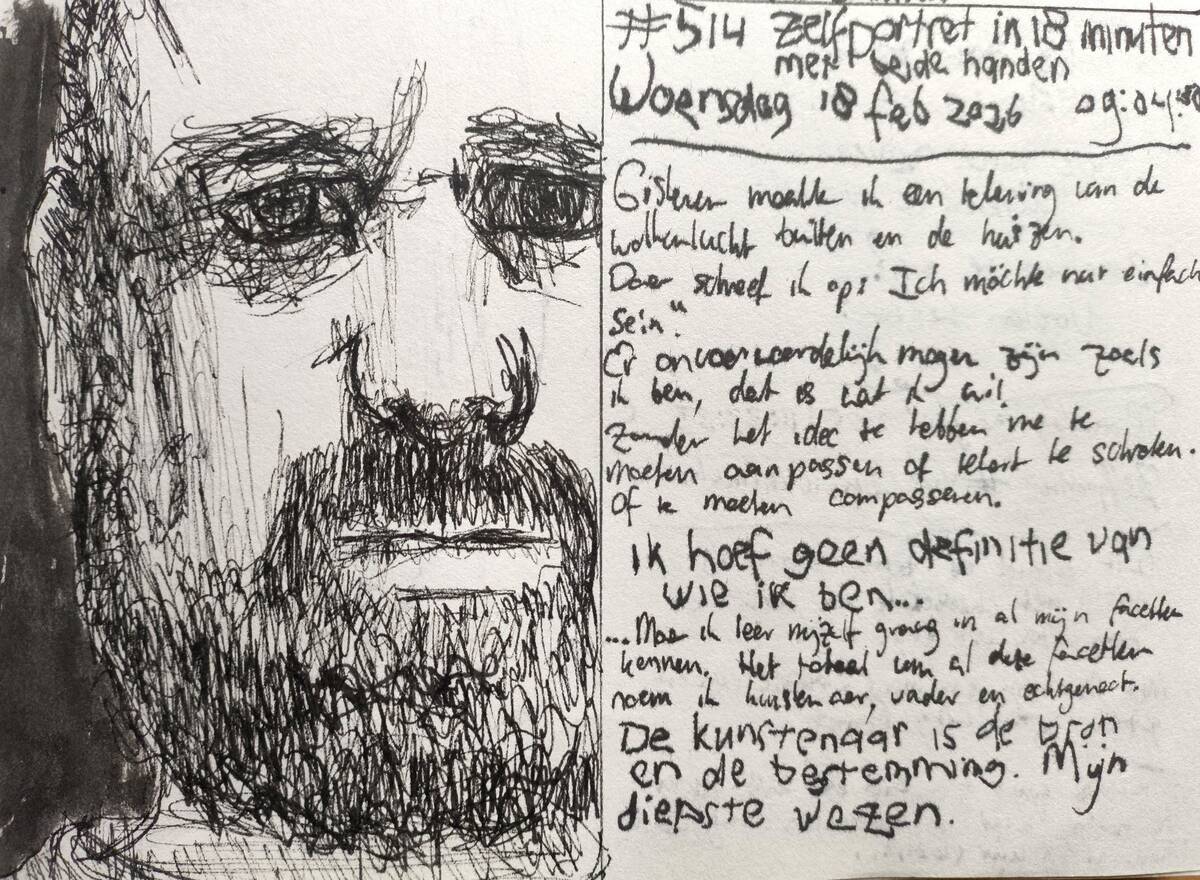 #514 Zelfportret in 18 minuten
met beide handen
Woensdag 18 feb 2026 09:04
Gisteren maakte ik een tekening van de
wolkenlucht buiten en de huizen.
Daar schreef ik op: Ich möchte nur einfach
sein."
Er onvoorwaardelijk mogen zijn zoals
ik ben, dat is wat ik wil.
Zonder het idee te hebben me te
moeten aanpassen of tekort te schieten.
Of te moeten compasseren.
Ik hoef geen definitie van
wie ik ben...
...Maar ik leer mijzelf graag in al mijn facetten
kennen. Het totaal van al deze facetten
noem ik kunstenaar, vader en echtgenoot.
De kunstenaar is de bron
en de bestemming. Mijn
diepste wezen.